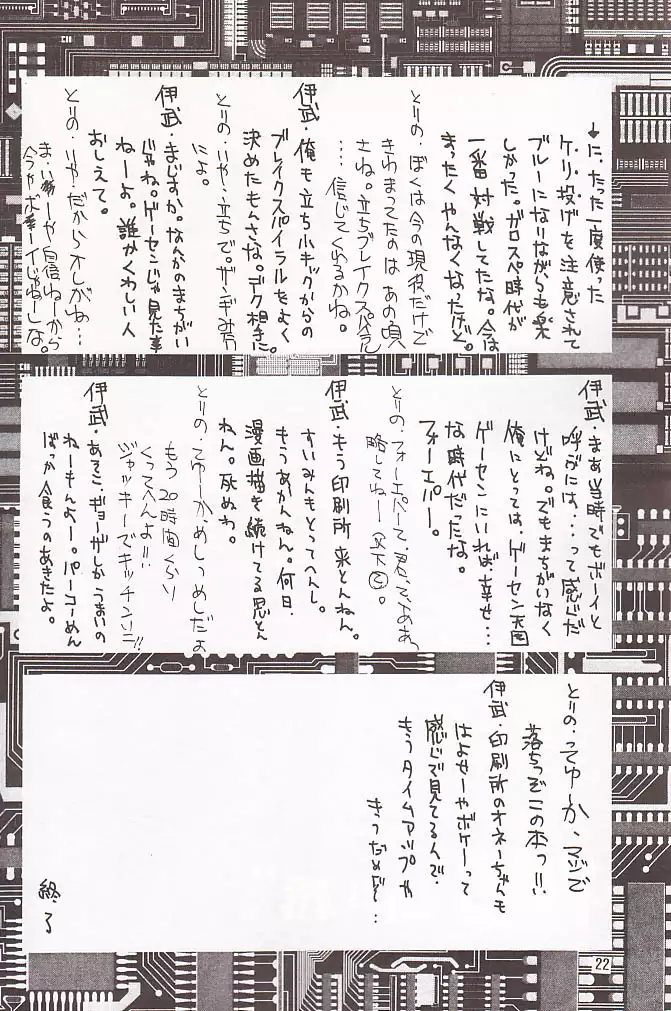 ↓に、たった一度使った
ケリ投げを注意されて
ブルーになりながらも楽
しかった。ガロスペ時代が
一番対戦してたな。今は
まったくやんなくなったけど。
とりの・ぼくは今の現役だけで
きわまってたのはあの頃
さね。立ちブレイクスパイラル
…信じてくれるかね。
伊武・俺も立ち小キックからの
ブレイクスパイラルをよく
決めたもんさな。デク相手に。
とりの・いや・立ちで。ザンギみた
によ。
伊武・まじすか。なんかのまちがい
じゃね。ゲーセンじゃ見た事
ねーよ。誰かくわしい人
おしえて。
とりの・いや・だからオレがね…
ま・いや自信ねーから
今やボーイじゃねしな。
伊武・まあ当時でもボーイと
呼ぶには…って感じだ
けどね。でもまちがいなく
俺にとっては、ゲーセン天国
ゲーセンにいれば幸せ…
な時代だったな。
フォーエバー。
とりの・フォーエバーて、君、であああ
略してねー
伊武・もう印刷所来とんねん。
すいみんもとってへんし。
もうあかんねん。何日
漫画描き続けてる思とん
ねん。死ぬわ。
とりの・てゆーか、めしっめしだよ
もう20時間くらい
くってへんよ!!
ジャッキーでキッチンリニ!!
伊武・あそこ、ギョーザしかうまいの
ねーもんよー。パーコーめん
ばっか食うのあきたよ。
とりの・ってゆーか、マジで
落ちっぞこの本っ!!
伊武・印刷所のオネーちゃんも
はよせーやボケーって
感じで見てるんで・
もうタイムアップや
きっだめだ…
終了
22